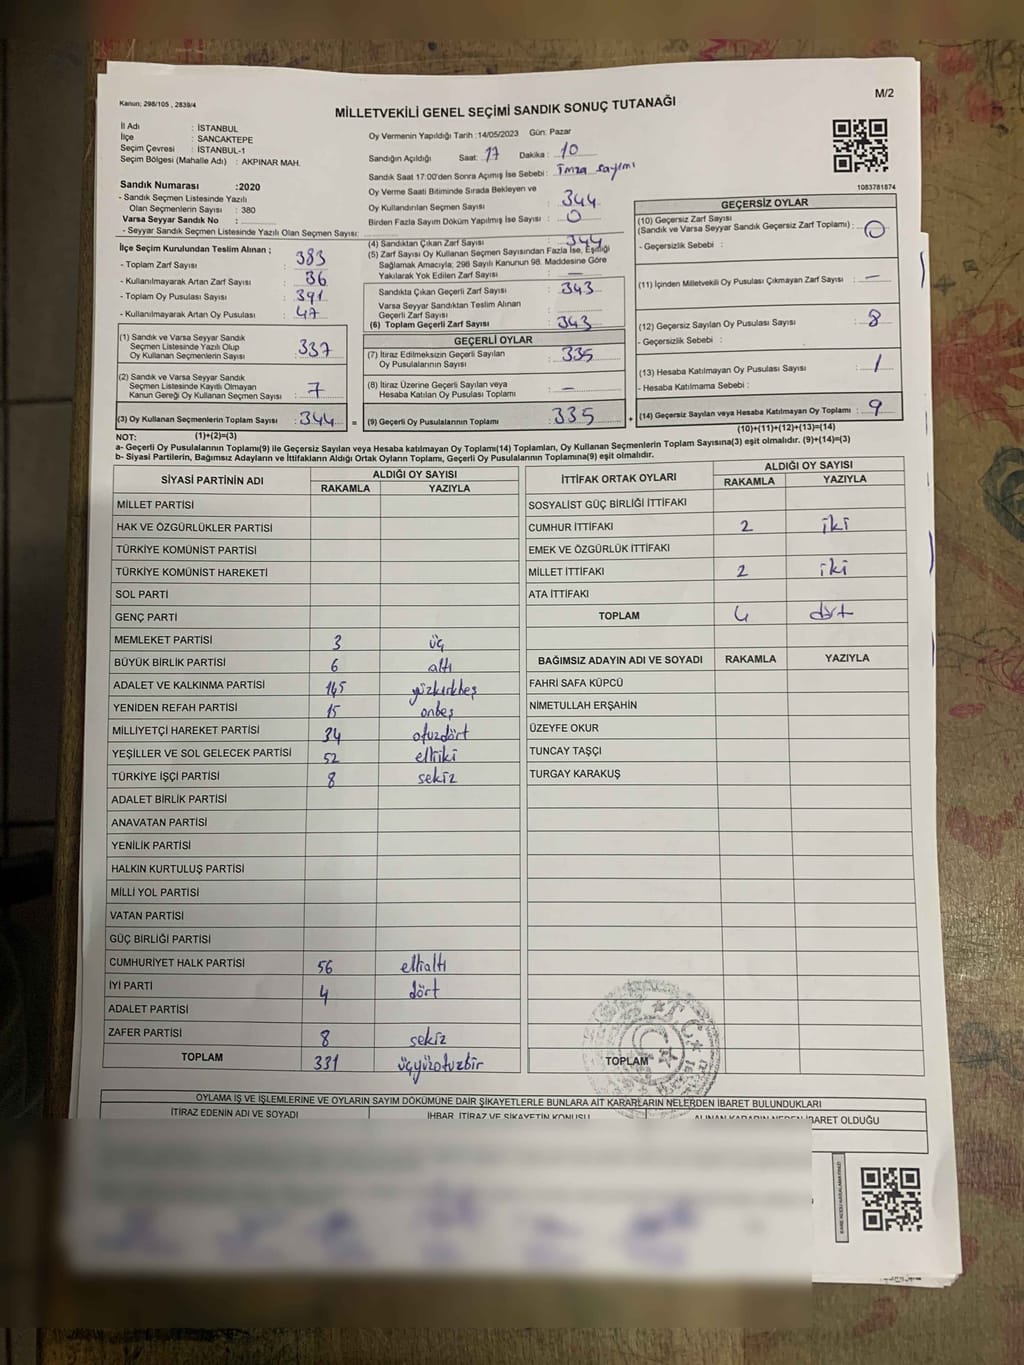 Kanun; 298/105 , 2839/4
M/2
MİLLETVEKİLİ GENEL SEÇİMİ SANDIK SONUÇ TUTANAĞI
İl Adı : İSTANBUL
İlçe : SANCAKTEPE
Seçim Çevresi : İSTANBUL-1
Seçim Bölgesi (Mahalle Adı) : AKPINAR MAH.
Oy Vermenin Yapıldığı Tarih :14/05/2023 Gün: Pazar
Sandığın Açıldığı Saat: 17 Dakika : 10
Sandık Saat 17:00'den Sonra Açımış İse Sebebi : imza sayımı
Oy Verme Saati Bitiminde Sırada Bekleyen ve
Oy Kullandırılan Seçmen Sayısı : 344
Birden Fazla Sayım Döküm Yapılmış İse Sayısı : 0
1083781874
Sandık Numarası :2020
- Sandık Seçmen Listesinde Yazılı
Olan Seçmenlerin Sayısı : 380
Varsa Seyyar Sandık No :
- Seyyar Sandık Seçmen Listesinde Yazılı Olan Seçmen Sayısı:
İlçe Seçim Kurulundan Teslim Alınan ;
- Toplam Zarf Sayısı : 383
- Kullanılmayarak Artan Zarf Sayısı : 36
- Toplam Oy Pusulası Sayısı : 391
- Kullanılmayarak Artan Oy Pusulası : 47
(1) Sandık ve Varsa Seyyar Sandık
Seçmen Listesinde Yazılı Olup
Oy Kullanan Seçmenlerin Sayısı : 337
(2) Sandık ve Varsa Seyyar Sandık
Seçmen Listesinde Kayıtlı Olmayan
Kanun Gereği Oy Kullanan Seçmen Sayısı : 7
(3) Oy Kullanan Seçmenlerin Toplam Sayısı : 344 =
(4) Sandıktan Çıkan Zarf Sayısı : 344
(5) Zarf Sayısı Oy Kullanan Seçmen Sayısından Fazla İse, Eşitliği
Sağlamak Amacıyla; 298 Sayılı Kanunun 98. Maddesine Göre
Yakılarak Yok Edilen Zarf Sayısı : —
Sandıkta Çıkan Geçerli Zarf Sayısı : 343
Varsa Seyyar Sandıktan Teslim Alınan
Geçerli Zarf Sayısı :
(6) Toplam Geçerli Zarf Sayısı : 343
GEÇERLİ OYLAR
(7) İtiraz Edilmeksizin Geçerli Sayılan
Oy Pusulalarının Sayısı : 335
(8) İtiraz Üzerine Geçerli Sayılan veya
Hesaba Katılan Oy Pusulası Toplamı : —
(9) Geçerli Oy Pusulalarının Toplamı : 335 +
GEÇERSİZ OYLAR
(10) Geçersiz Zarf Sayısı
(Sandık ve Varsa Seyyar Sandık Geçersiz Zarf Toplamı) : 0
- Geçersizlik Sebebi :
(11) İçinden Milletvekili Oy Pusulası Çıkmayan Zarf Sayısı : —
(12) Geçersiz Sayılan Oy Pusulası Sayısı : 8
- Geçersizlik Sebebi :
(13) Hesaba Katılmayan Oy Pusulası Sayısı : 1
- Hesaba Katılmama Sebebi :
(14) Geçersiz Sayılan veya Hesaba Katılmayan Oy Toplamı : 9
NOT: (1)+(2)=(3) (10)+(11)+(12)+(13)=(14)
a- Geçerli Oy Pusulalarının Toplamı(9) ile Geçersiz Sayılan veya Hesaba katılmayan Oy Toplam(14) Toplamları, Oy Kullanan Seçmenlerin Toplam Sayısına(3) eşit olmalıdır. (9)+(14)=(3)
b- Siyasi Partilerin, Bağımsız Adayların ve İttifakların Aldığı Ortak Oyların Toplamı, Geçerli Oy Pusulalarının Toplamına(9) eşit olmalıdır.
SİYASİ PARTİNİN ADI ALDIĞI OY SAYISI
RAKAMLA YAZIYLA
MİLLET PARTİSİ
HAK VE ÖZGÜRLÜKLER PARTİSİ
TÜRKİYE KOMÜNİST PARTİSİ
TÜRKİYE KOMÜNİST HAREKETİ
SOL PARTİ
GENÇ PARTİ
MEMLEKET PARTİSİ 3 üç
BÜYÜK BİRLİK PARTİSİ 6 altı
ADALET VE KALKINMA PARTİSİ 145 yüzkırkbeş
YENİDEN REFAH PARTİSİ 15 onbeş
MİLLİYETÇİ HAREKET PARTİSİ 34 otuzdört
YEŞİLLER VE SOL GELECEK PARTİSİ 52 elliiki
TÜRKİYE İŞÇİ PARTİSİ 8 sekiz
ADALET BİRLİK PARTİSİ
ANAVATAN PARTİSİ
YENİLİK PARTİSİ
HALKIN KURTULUŞ PARTİSİ
MİLLİ YOL PARTİSİ
VATAN PARTİSİ
GÜÇ BİRLİĞİ PARTİSİ
CUMHURİYET HALK PARTİSİ 56 ellialtı
İYİ PARTİ 4 dört
ADALET PARTİSİ
ZAFER PARTİSİ 8 sekiz
TOPLAM 331 üçyüzotuzbir
İTTİFAK ORTAK OYLARI ALDIĞI OY SAYISI
RAKAMLA YAZIYLA
SOSYALİST GÜÇ BİRLİĞİ İTTİFAKI
CUMHUR İTTİFAKI 2 iki
EMEK VE ÖZGÜRLÜK İTTİFAKI
MİLLET İTTİFAKI 2 iki
ATA İTTİFAKI
TOPLAM 4 dört
BAĞIMSIZ ADAYIN ADI VE SOYADI RAKAMLA YAZIYLA
FAHRİ SAFA KÜPCÜ
NİMETULLAH ERŞAHİN
ÜZEYFE OKUR
TUNCAY TAŞÇI
TURGAY KARAKUŞ
TOPLAM
OYLAMA İŞ VE İŞLEMLERİNE VE OYLARIN SAYIM DÖKÜMÜNE DAİR ŞİKAYETLERLE BUNLARA AİT KARARLARIN NELERDEN İBARET BULUNDUKLARI
İTİRAZ EDENİN ADI VE SOYADI İHBAR, İTİRAZ VE ŞİKAYETİN KONUSU ALINAN KARARIN NEDEN İBARET OLDUĞU